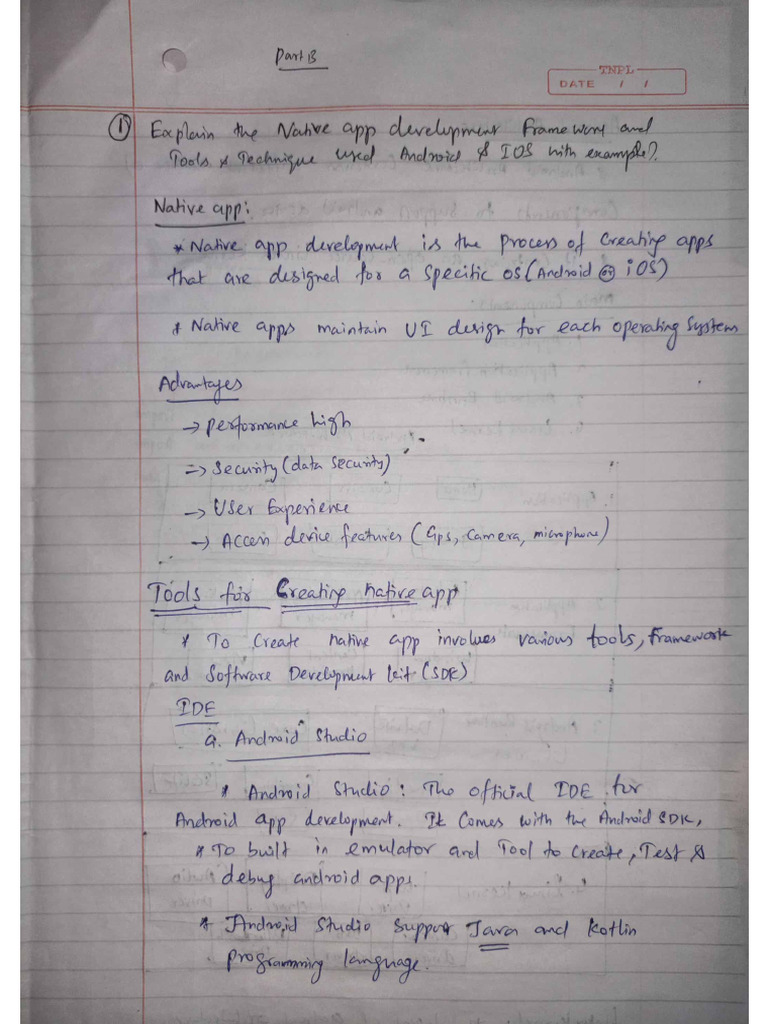 Part B
TNPL
DATE / /
① Explain the Native app development Framework and
Tools & Technique used Android & IOS with example?.
Native app:
* Native app development is the process of creating apps
that are designed for a specific os (Android or iOS)
* Native apps maintain UI design for each operating system
Advantages
→ Performance high
⇒ Security (data security)
→ User Experience
→ Access device features (Gps, Camera, microphone)
Tools for Creating native app
* To Create native app involves various tools, framework
and Software Development kit (SDK)
IDE
a. Android Studio
* Android Studio: The official IDE for
Android app development. It Comes with the Android SDK,
* To built in emulator and Tool to Create, Test &
debug android apps.
* Android Studio support Java and Kotlin
programming language.